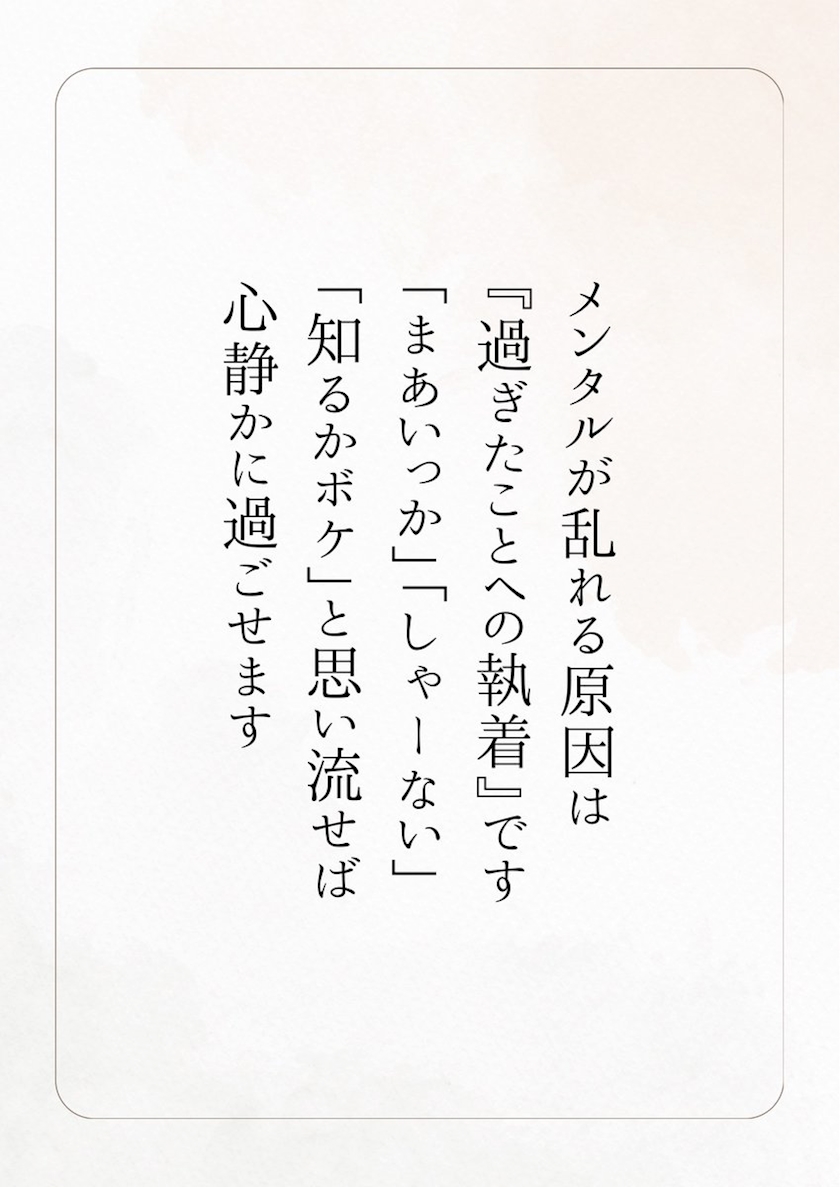 メンタルが乱れる原因は
『過ぎたことへの執着』です
「まあいっか」「しゃーない」
「知るかボケ」と思い流せば
心静かに過ごせます